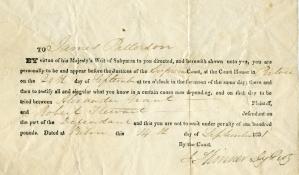 TO James Patterson
BY virtue of his Majesty's Writ of Subpœna to you directed, and herewith shown unto you, you are
personally to be and appear before the Justices of the Supreme Court, at the Court House in Pictou
on the 20th day of September at ten o'clock in the forenoon of the same day; there and
then to testify all and singular what you know in a certain cause now depending, and on that day to be
tried between Alexander Grant Plaintiff,
and Robert Stewart Defendant on
the part of the Defendant and this you are not to omit under penalty of one hundred
pounds. Dated at Pictou this 14th day of September
By the Court.